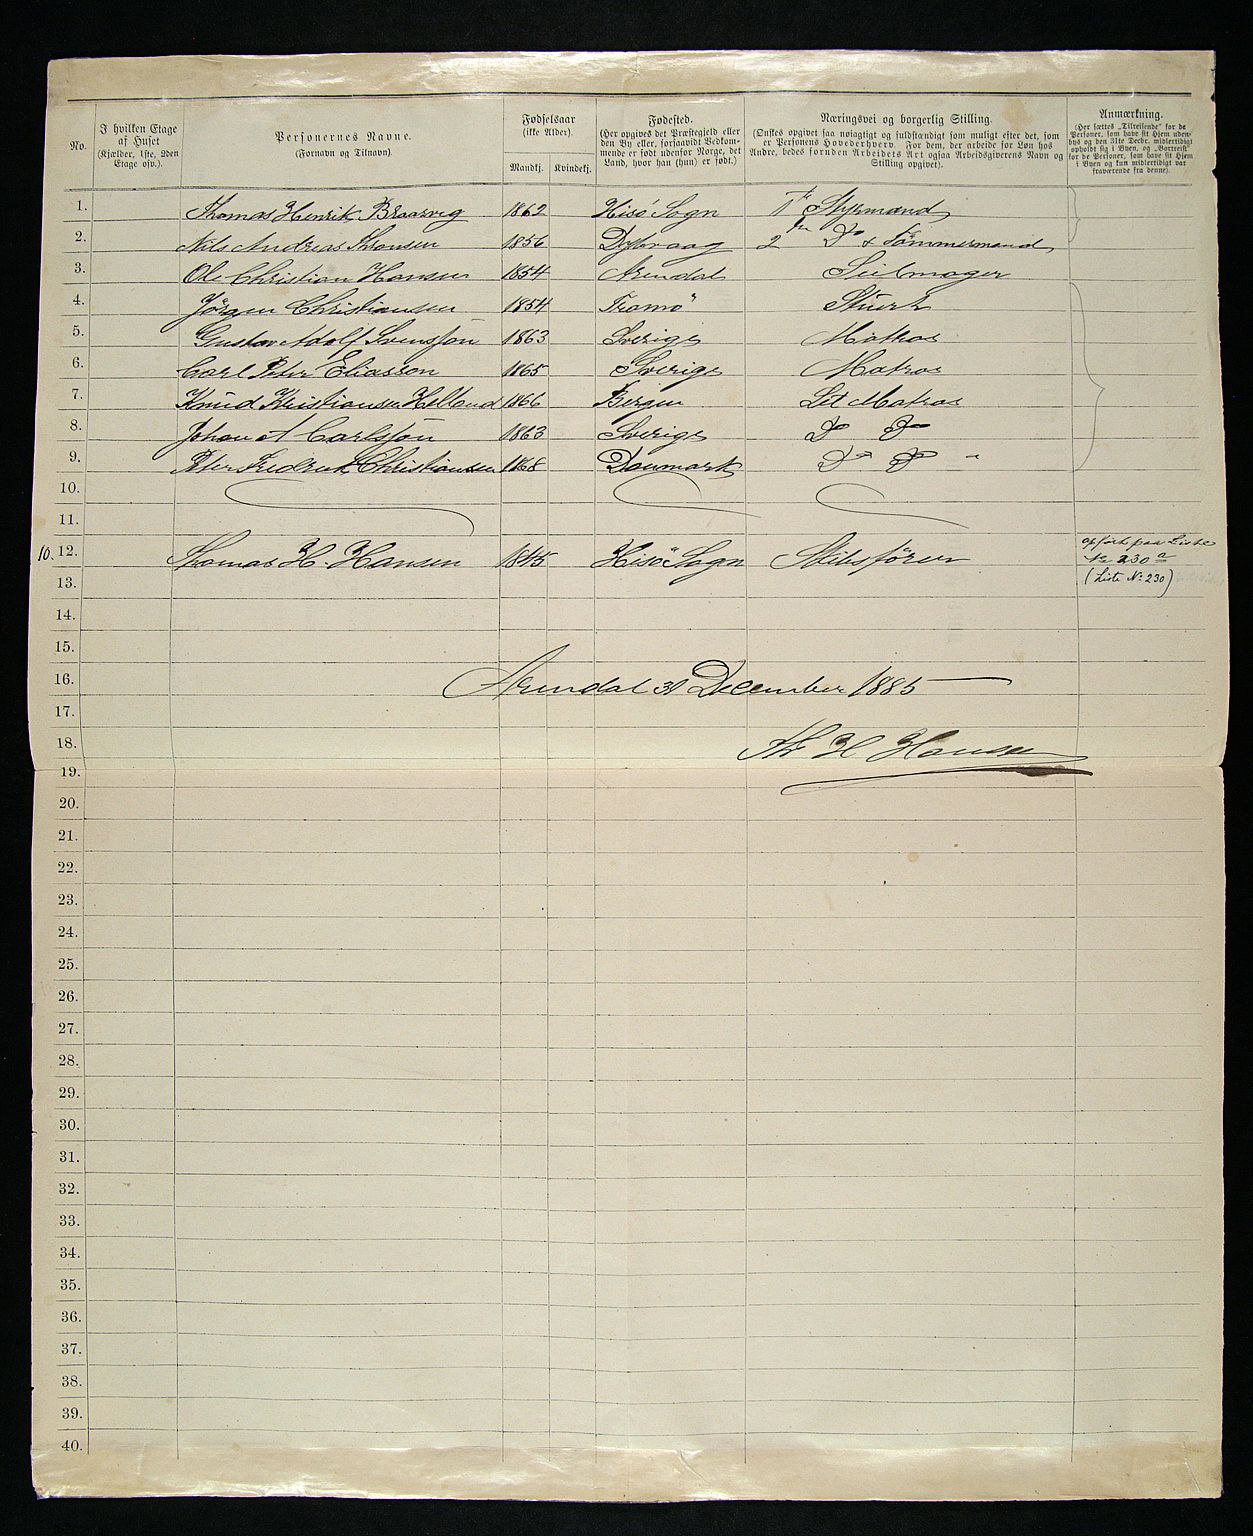 No.
I hvilken Etage
af Huset
(Kjælder, 1ste, 2den
Etage osv.).
Personernes Navne.
(Fornavn og Tilnavn).
Fødselsaar
(ikke Alder).
Mandkj. Kvindekj.
Fødested.
(Her opgives det Præstegjeld eller
den By eller, forsaavidt Vedkom-
mende er født udenfor Norge, det
Land, hvor han (hun) er født.)
Næringsvei og borgerlig Stilling.
(Ønskes opgivet saa nøiagtigt og fuldstændigt som muligt efter det, som
er Personens Hovederhverv. For dem, der arbeide for Løn hos
Andre, bedes foruden Arbeidets Art ogsaa Arbeidsgiverens Navn og
Stilling opgivet).
Anmærkning.
(Her sættes „Tilreisende“ for de
Personer, som have sit Hjem uden-
bys og den 31te Decbr. midlertidigt
opholdt sig i Byen, og „Bortreist“
for de Personer, som have sit Hjem
i Byen og kun midlertidigt var
fraværende fra denne).
1. Thomas Henrik Braarvig 1862 Hisö Sogn 1te Styrmand
2. Nils Andreas 1856 Dybvaag 2den Do & Tømmermand
3. Ole Christian Hansen 1854 Arendal Seilmager
4. Jörgen Christiansen 1854 Tromö Stuert
5. Gustav Adolf Svensson 1863 Sverige Matros
6. Carl Peter Eliasson 1865 Sverige Matros
7. Knud Kristiansen Helland 1866 Bergen Let Matros
8. Johan A Carlsson 1863 Sverige Do Do
9. Peter Fredrick Christiansen 1868 Danmark Do Do "
10.
11.
10. 12. Thomas H. Hansen 1845 Hisö Sogn Skibsfører opført paa Liste
No 230 a
(Liste No 230)
13.
14.
15.
16. Arendal 31 December 1885
17.
18. Th H Hansen
19.
20.
21.
22.
23.
24.
25.
26.
27.
28.
29.
30.
31.
32.
33.
34.
35.
36.
37.
38.
39.
40.